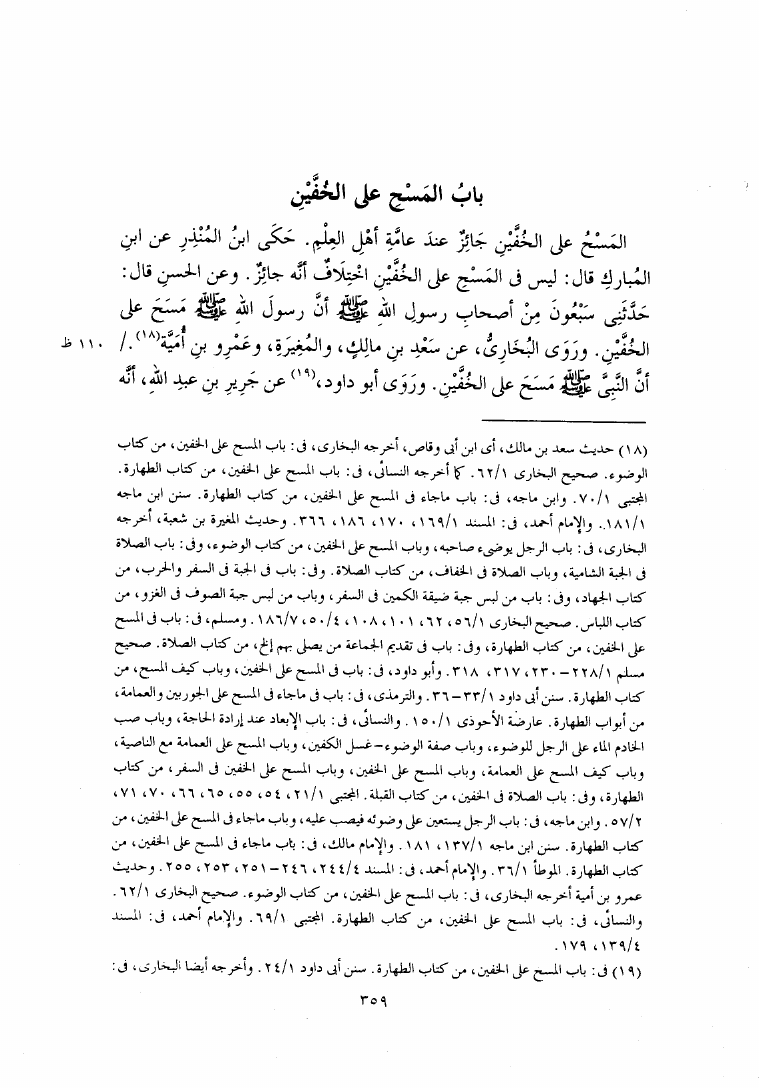 بابُ المَسْحِ على الخُفَّيْنِ
المَسْحُ على الخُفَّيْنِ جَائِزٌ عندَ عامَّةِ أهْلِ العِلْمِ. حَكَى ابنُ المُنْذِرِ عن ابنِ
المُباركِ قال: ليس فى المَسْحِ على الخُفَّيْنِ اخْتِلَافٌ أنَّه جائِزٌ. وعن الحسنِ قال:
حَدَّثَنِى سَبْعُونَ مِنْ أصحابِ رسولِ اللهِ ﷺ أنَّ رسولَ اللهِ ﷺ مَسَحَ على
الخُفَّيْنِ. ورَوَى البُخَارِىُّ، عن سَعْدِ بنِ مالِكٍ، والمُغِيرَةِ، وعَمْرِو بنِ أُمَيَّةَ(١٨)./ ١١٠ ظ
أنَّ النَّبِىَّ ﷺ مَسَحَ على الخُفَّيْنِ. ورَوَى أبو داود،(١٩) عن جَرِيرِ بنِ عبدِ اللهِ، أنَّه
(١٨) حديث سعد بن مالك، أى ابن أبى وقاص، أخرجه البخارى، فى: باب المسح على الخفين، من كتاب
الوضوء. صحيح البخارى ٦٢/١. كما أخرجه النسائى، فى: باب المسح على الخفين، من كتاب الطهارة.
المجتبى ٧٠/١. وابن ماجه، فى: باب ماجاء فى المسح على الخفين، من كتاب الطهارة. سنن ابن ماجه
١٨١/١. والإمام أحمد، فى: المسند ١٦٩/١، ١٧٠، ١٨٦، ٣٦٦. وحديث المغيرة بن شعبة، أخرجه
البخارى، فى: باب الرجل يوضىء صاحبه، وباب المسح على الخفين، من كتاب الوضوء، وفى: باب الصلاة
فى الجبة الشامية، وباب الصلاة فى الخفاف، من كتاب الصلاة. وفى: باب فى الجبة فى السفر والحرب، من
كتاب الجهاد، وفى: باب من لبس جبة ضيقة الكمين فى السفر، وباب من لبس جبة الصوف فى الغزو، من
كتاب اللباس. صحيح البخارى ٥٦/١، ٦٢، ١٠١، ١٠٨، ٥٠/٤، ١٨٦/٧. ومسلم، فى: باب فى المسح
على الخفين، من كتاب الطهارة، وفى: باب فى تقديم الجماعة من يصلى بهم إلخ، من كتاب الصلاة. صحيح
مسلم ٢٢٨/١-٢٣٠، ٣١٧، ٣١٨. وأبو داود، فى: باب فى المسح على الخفين، وباب كيف المسح، من
كتاب الطهارة. سنن أبى داود ٣٣/١-٣٦. والترمذى، فى: باب فى ماجاء فى المسح على الجوربين والعمامة،
من أبواب الطهارة. عارضة الأحوذى ١٥٠/١. والنسائى، فى: باب الإبعاد عند إرادة الحاجة، وباب صب
الخادم الماء على الرجل للوضوء، وباب صفة الوضوء-غسل الكفين، وباب المسح على العمامة مع الناصية،
وباب كيف المسح على العمامة، وباب المسح على الخفين، وباب المسح على الخفين فى السفر، من كتاب
الطهارة، وفى: باب الصلاة فى الخفين، من كتاب القبلة. المجتبى ٢١/١، ٥٤، ٥٥، ٦٥، ٦٦، ٧٠، ٧١،
٥٧/٢. وابن ماجه، فى: باب الرجل يستعين على وضوئه فيصب عليه، وباب ماجاء فى المسح على الخفين، من
كتاب الطهارة. سنن ابن ماجه ١٣٧/١، ١٨١. والإمام مالك، فى: باب ماجاء فى المسح على الخفين، من
كتاب الطهارة. الموطأ ٣٦/١. والإمام أحمد، فى: المسند ٢٤٤/٤، ٢٤٦-٢٥١، ٢٥٣، ٢٥٥. وحديث
عمرو بن أمية أخرجه البخارى، فى: باب المسح على الخفين، من كتاب الوضوء. صحيح البخارى ٦٢/١.
والنسائى، فى: باب المسح على الخفين، من كتاب الطهارة. المجتبى ٦٩/١. والإمام أحمد، فى: المسند
١٣٩/٤، ١٧٩.
(١٩) فى: باب المسح على الخفين، من كتاب الطهارة. سنن أبى داود ٢٤/١. وأخرجه أيضا البخارى، فى:
٣٥٩